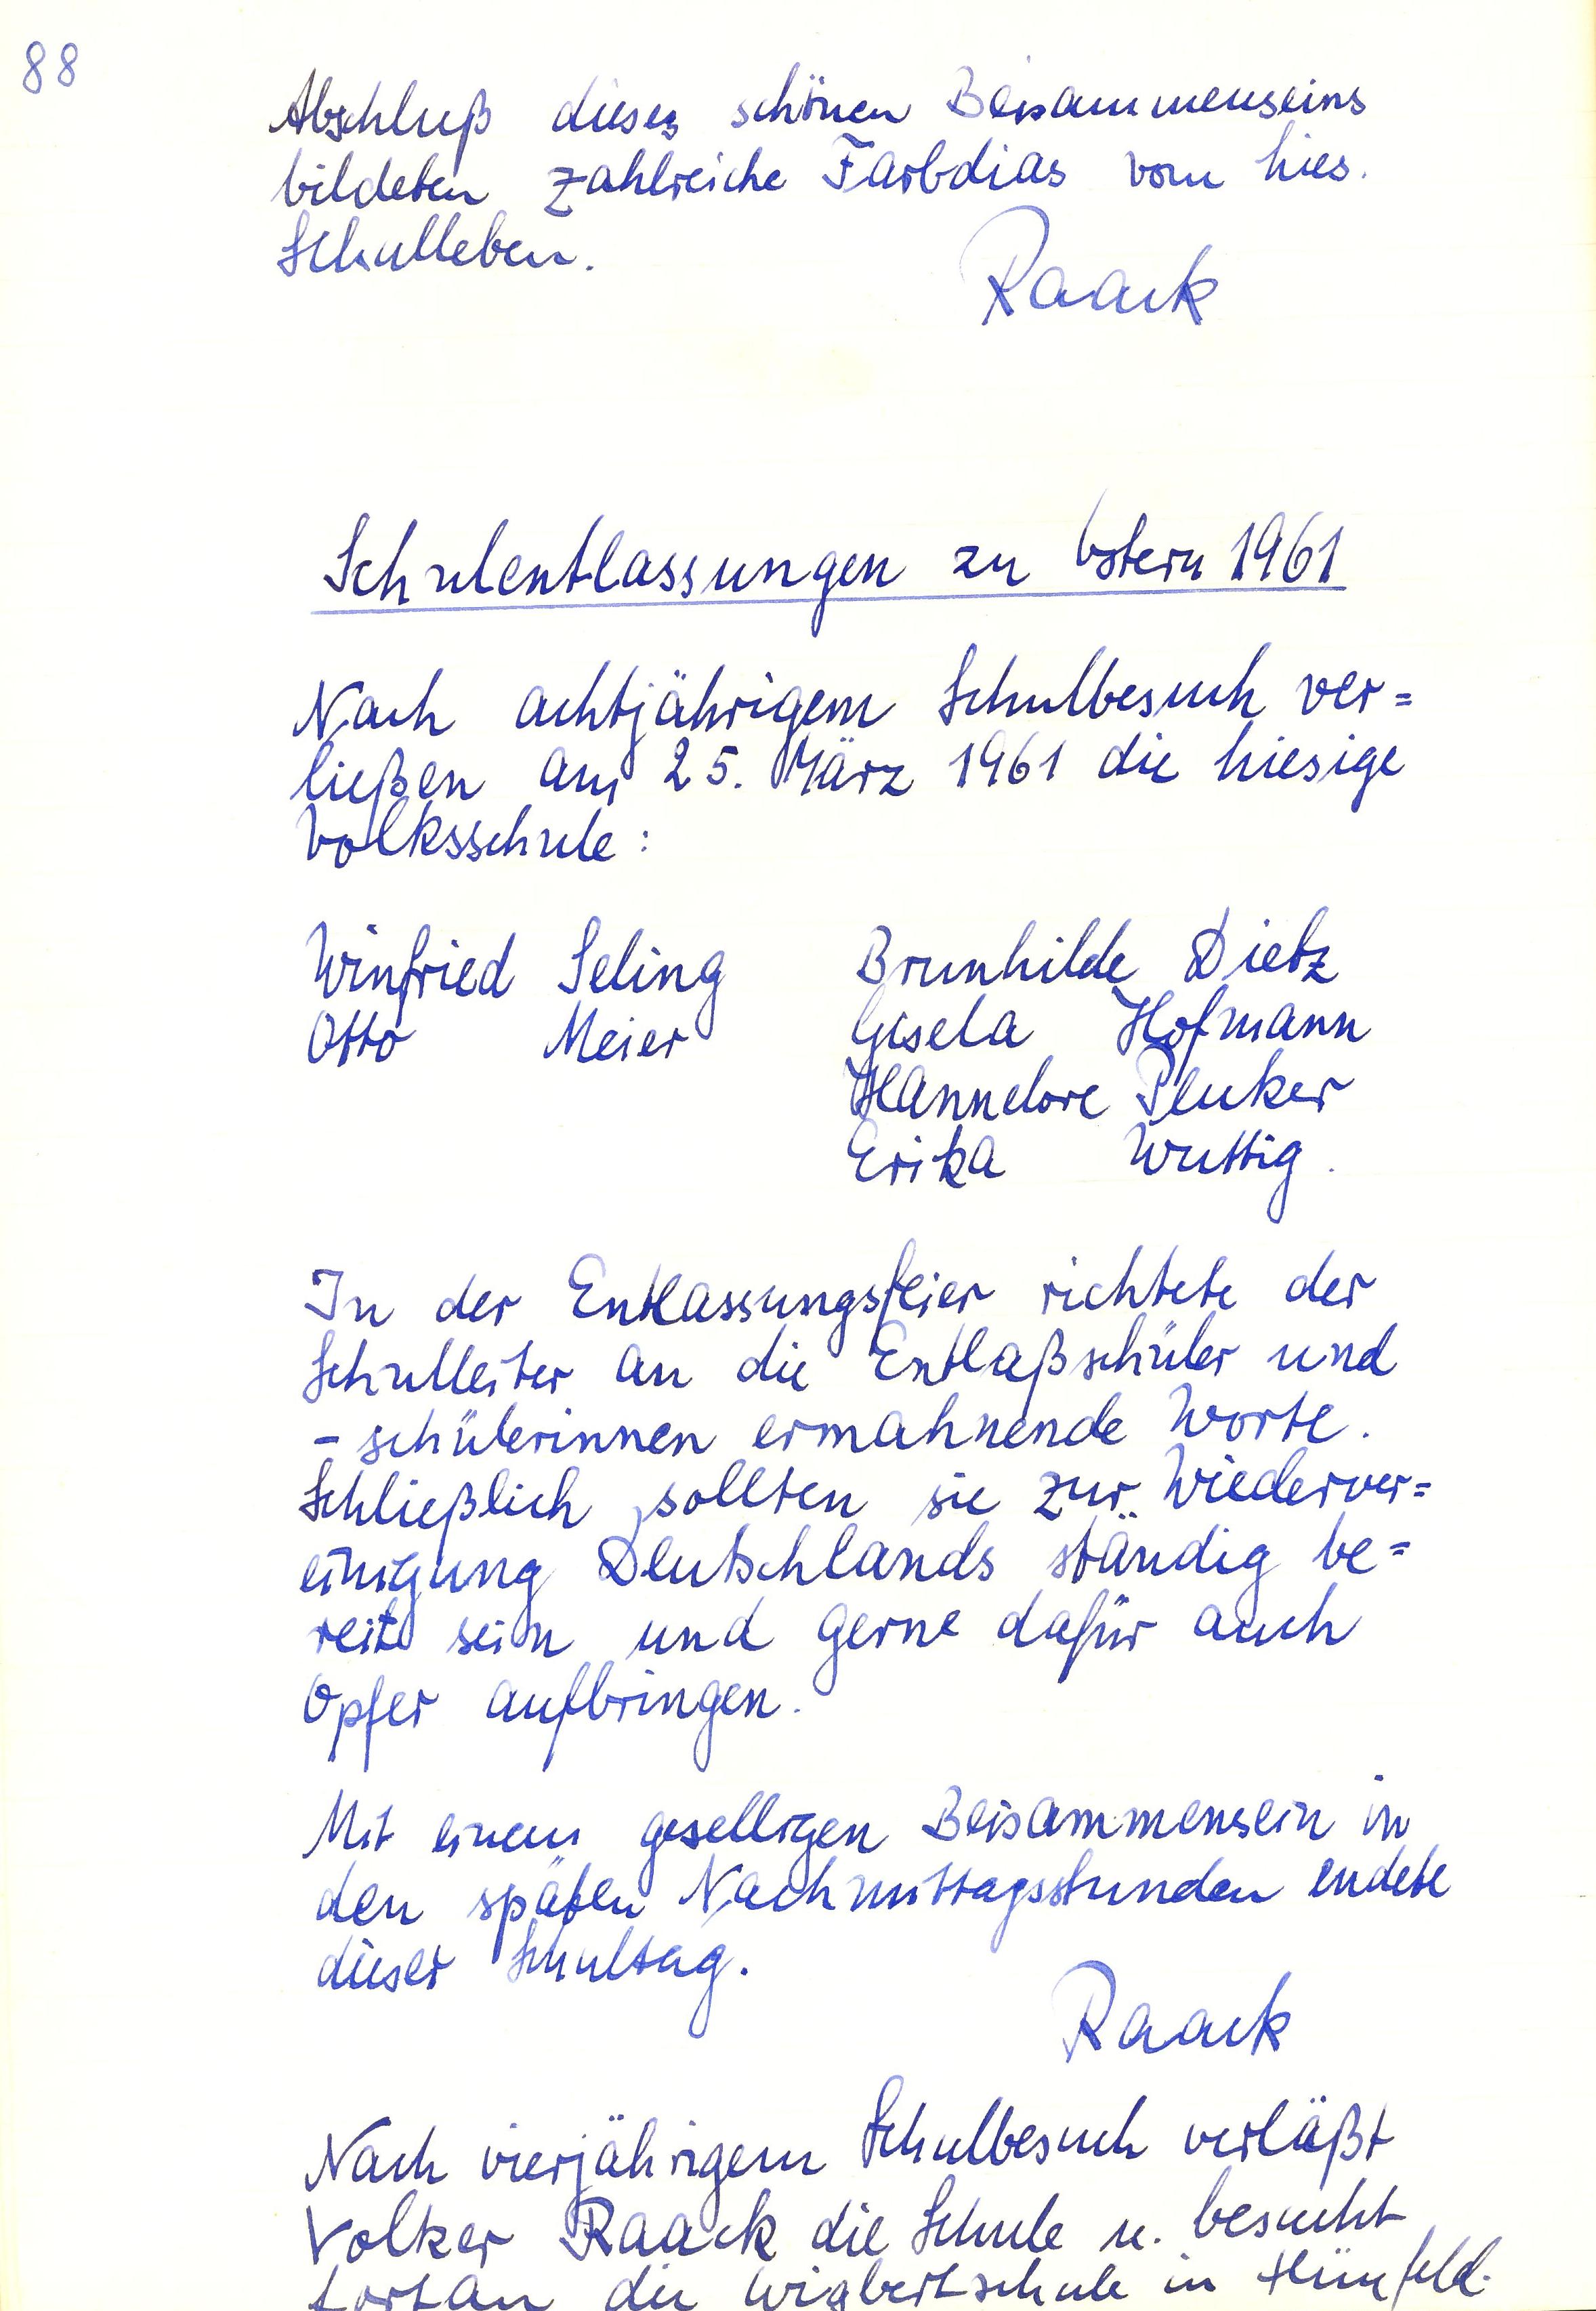 88
Abschluß dieses schönen Beisammenseins
bildeten zahlreiche Farbdias vom hies.
Schulleben.
Raack
Schulentlassungen zu Ostern 1961
Nach achtjährigem Schulbesuch ver=
ließen am 25. März 1961 die hiesige
Volksschule:
Winfried Seling Brunhilde Dietz
Otto Meier Gisela Hofmann
Hannelore Peuker
Erika Wuttig.
In der Entlassungsfeier richtete der
Schulleiter an die Entlaßschüler und
- schülerinnen ermahnende Worte.
Schließlich sollten sie zur Wiederver=
einigung Deutschlands ständig be=
reit sein und gerne dafür auch
Opfer aufbringen.
Mit einem geselligen Beisammensein in
den späten Nachmittagsstunden endete
dieser Schultag.
Raack
Nach vierjährigem Schulbesuch verläßt
Volker Raack die Schule u. besucht
fortan die Wigbertschule in Hünfeld.